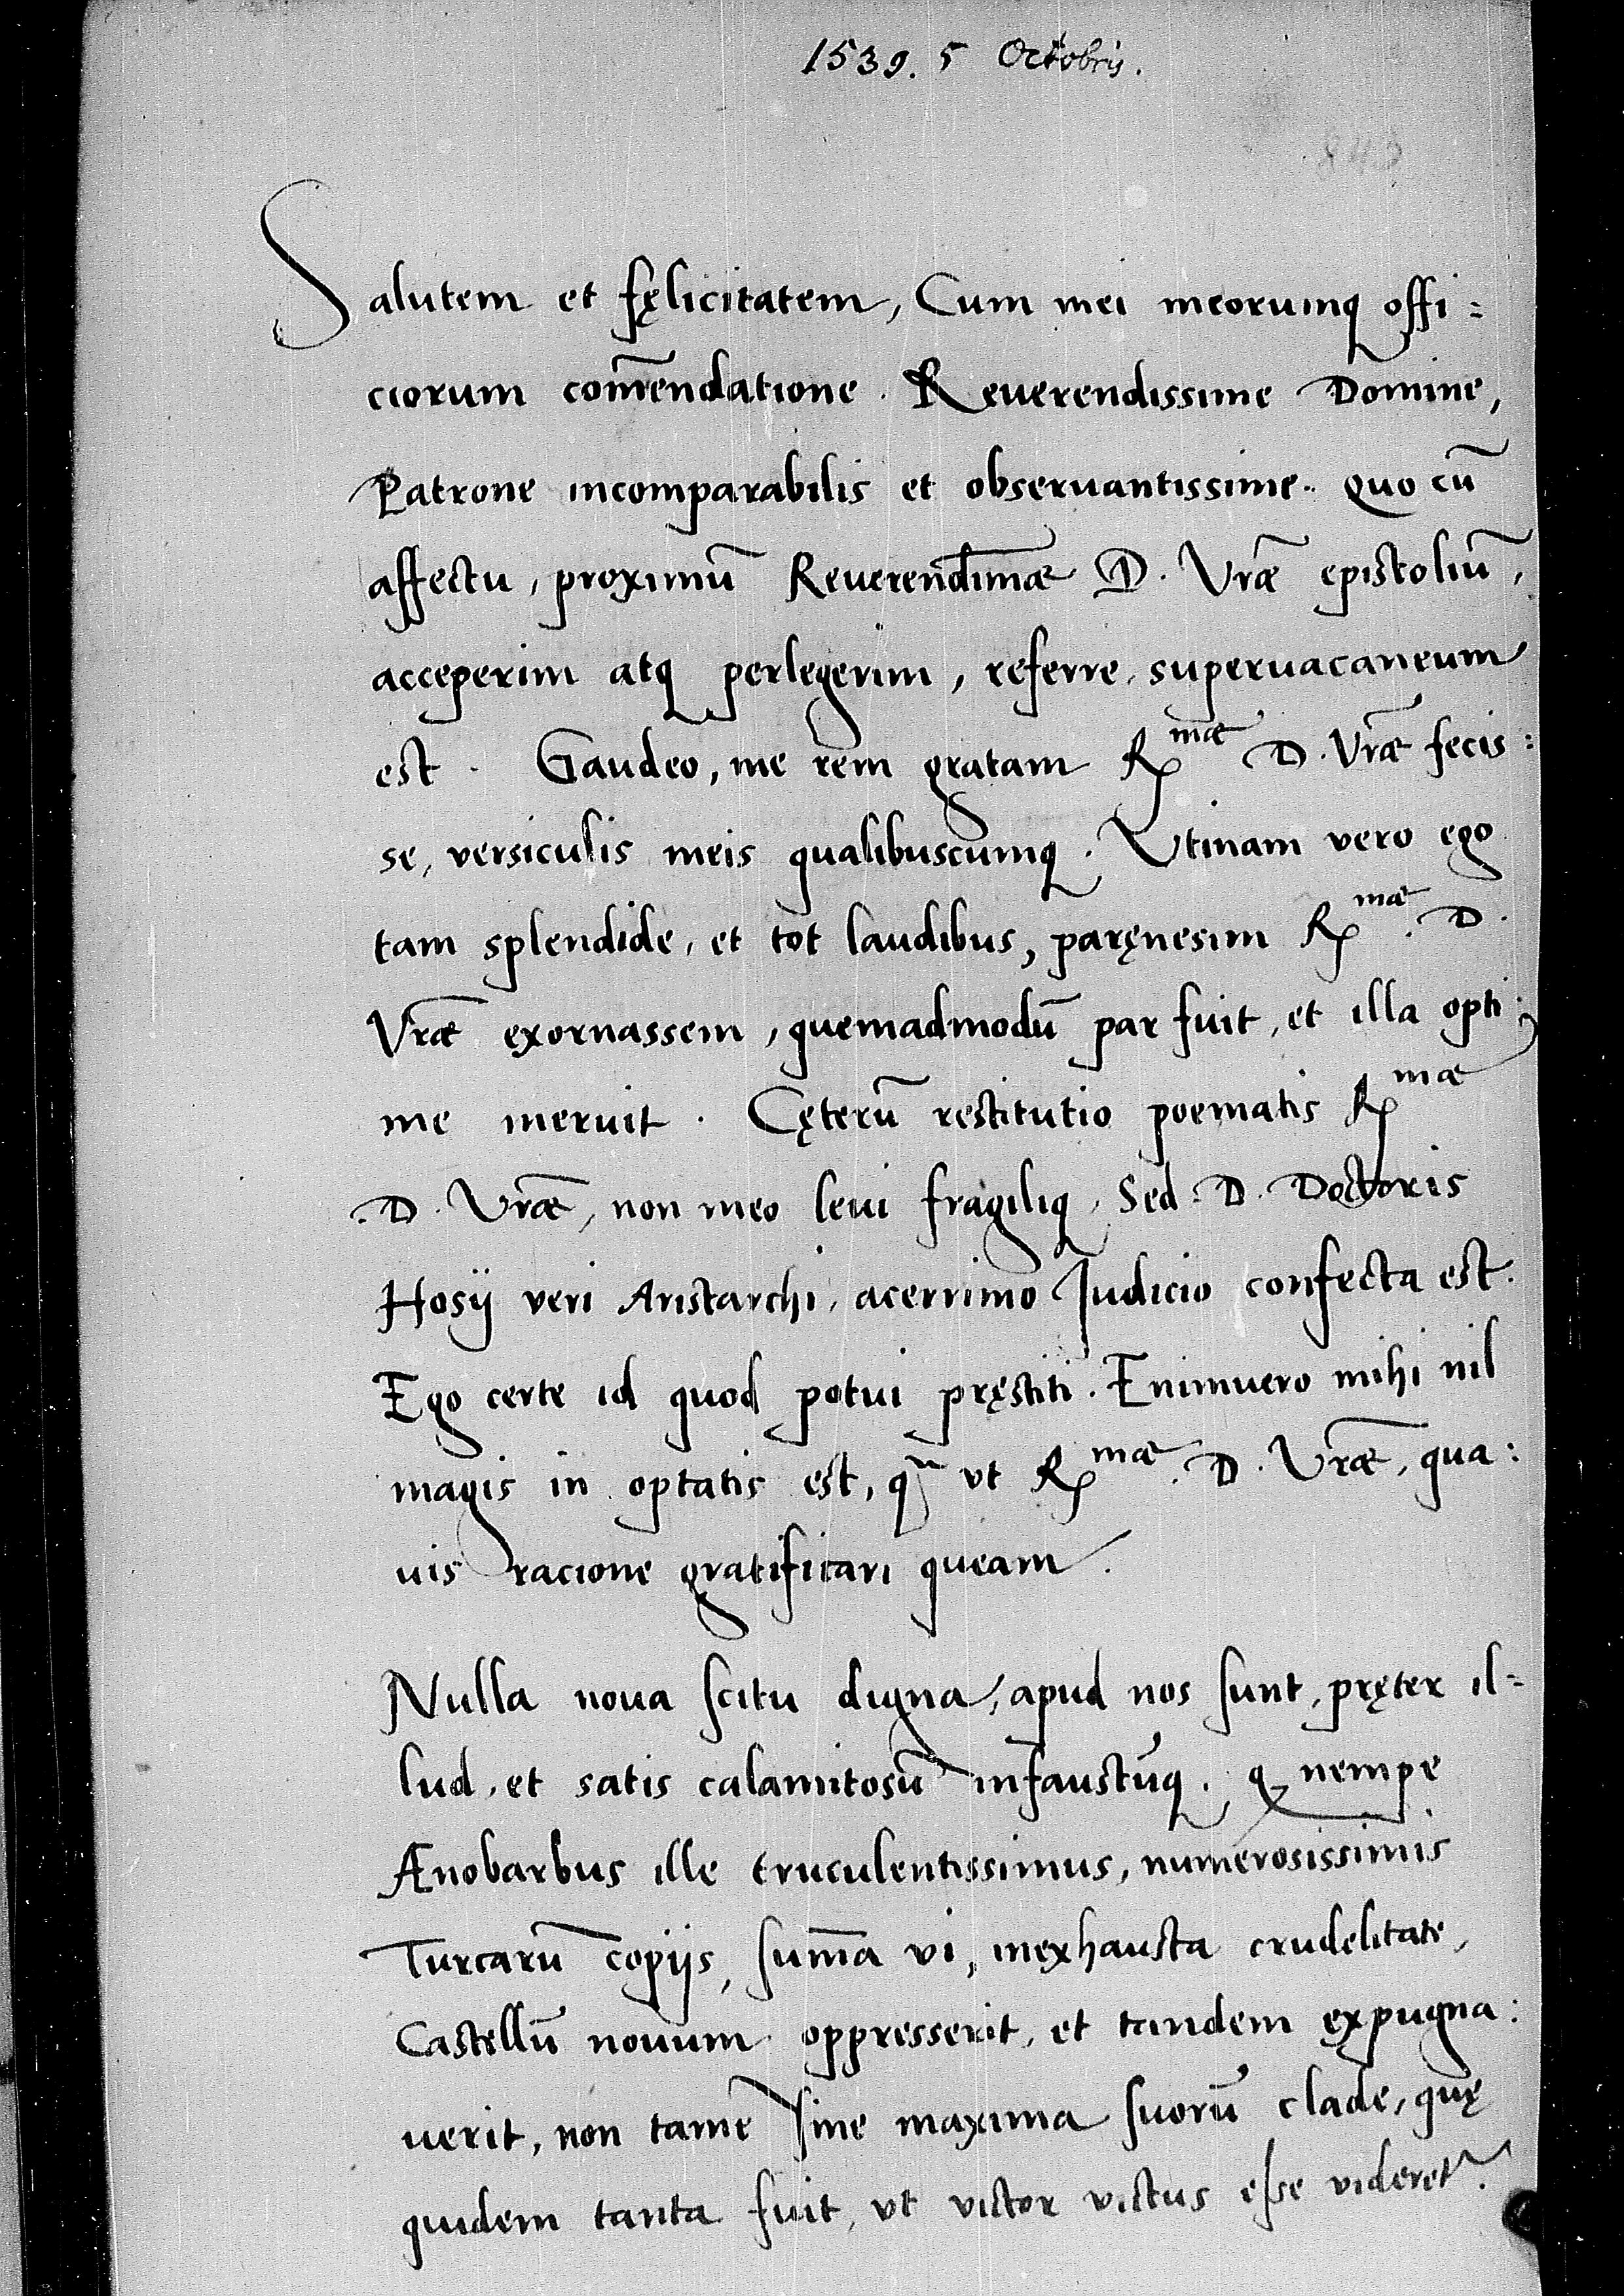 1539. 5 Octobris.
843
Salutem et fęlicitatem, Cum mei meorumq offi:
ciorum com̄endatione. Reuerendissime Domine,
Patrone incomparabilis et obseruantissime. Quo cū
affectu, proximū Reuerendimæ D. Vræ epistoliū,
acceperim atq perlegerim, referre, superuacaneum
est. Gaudeo, me rem gratam Rmæ D. Vræ fecis:
se, versiculis meis qualibuscumq. Vtinam vero ego
tam splendide, et tot laudibus, paręnesim Rmæ. D.
Vræ exornassem, quemadmodū par fuit, et illa opti:
me meruit. Cęterū restitutio poematis Rmæ
.D. Vræ, non meo leui fragiliq, Sed. D. Doctoris
Hosij veri Aristarchi, acerrimo Iudicio confecta est.
Ego certe id quod potui pręstiti. Enimuero mihi nil
magis in optatis est, q̄ vt Rmæ. D. Vræ, qua:
uis racione gratificari queam.
Nulla noua scitu digna, apud nos sunt, pręter il-
lud, et satis calamitosū infaustūq. q nempe
Ænobarbus ille truculentissimus, numerosissimis
Turcarū copijs, sum̄a vi, inexhausta crudelitate,
Castellū nouum oppresserit, et tandem expugna:
uerit, non tamē sine maxima suorū clade, quę
quidem tanta fuit, vt victor victus esse videret.